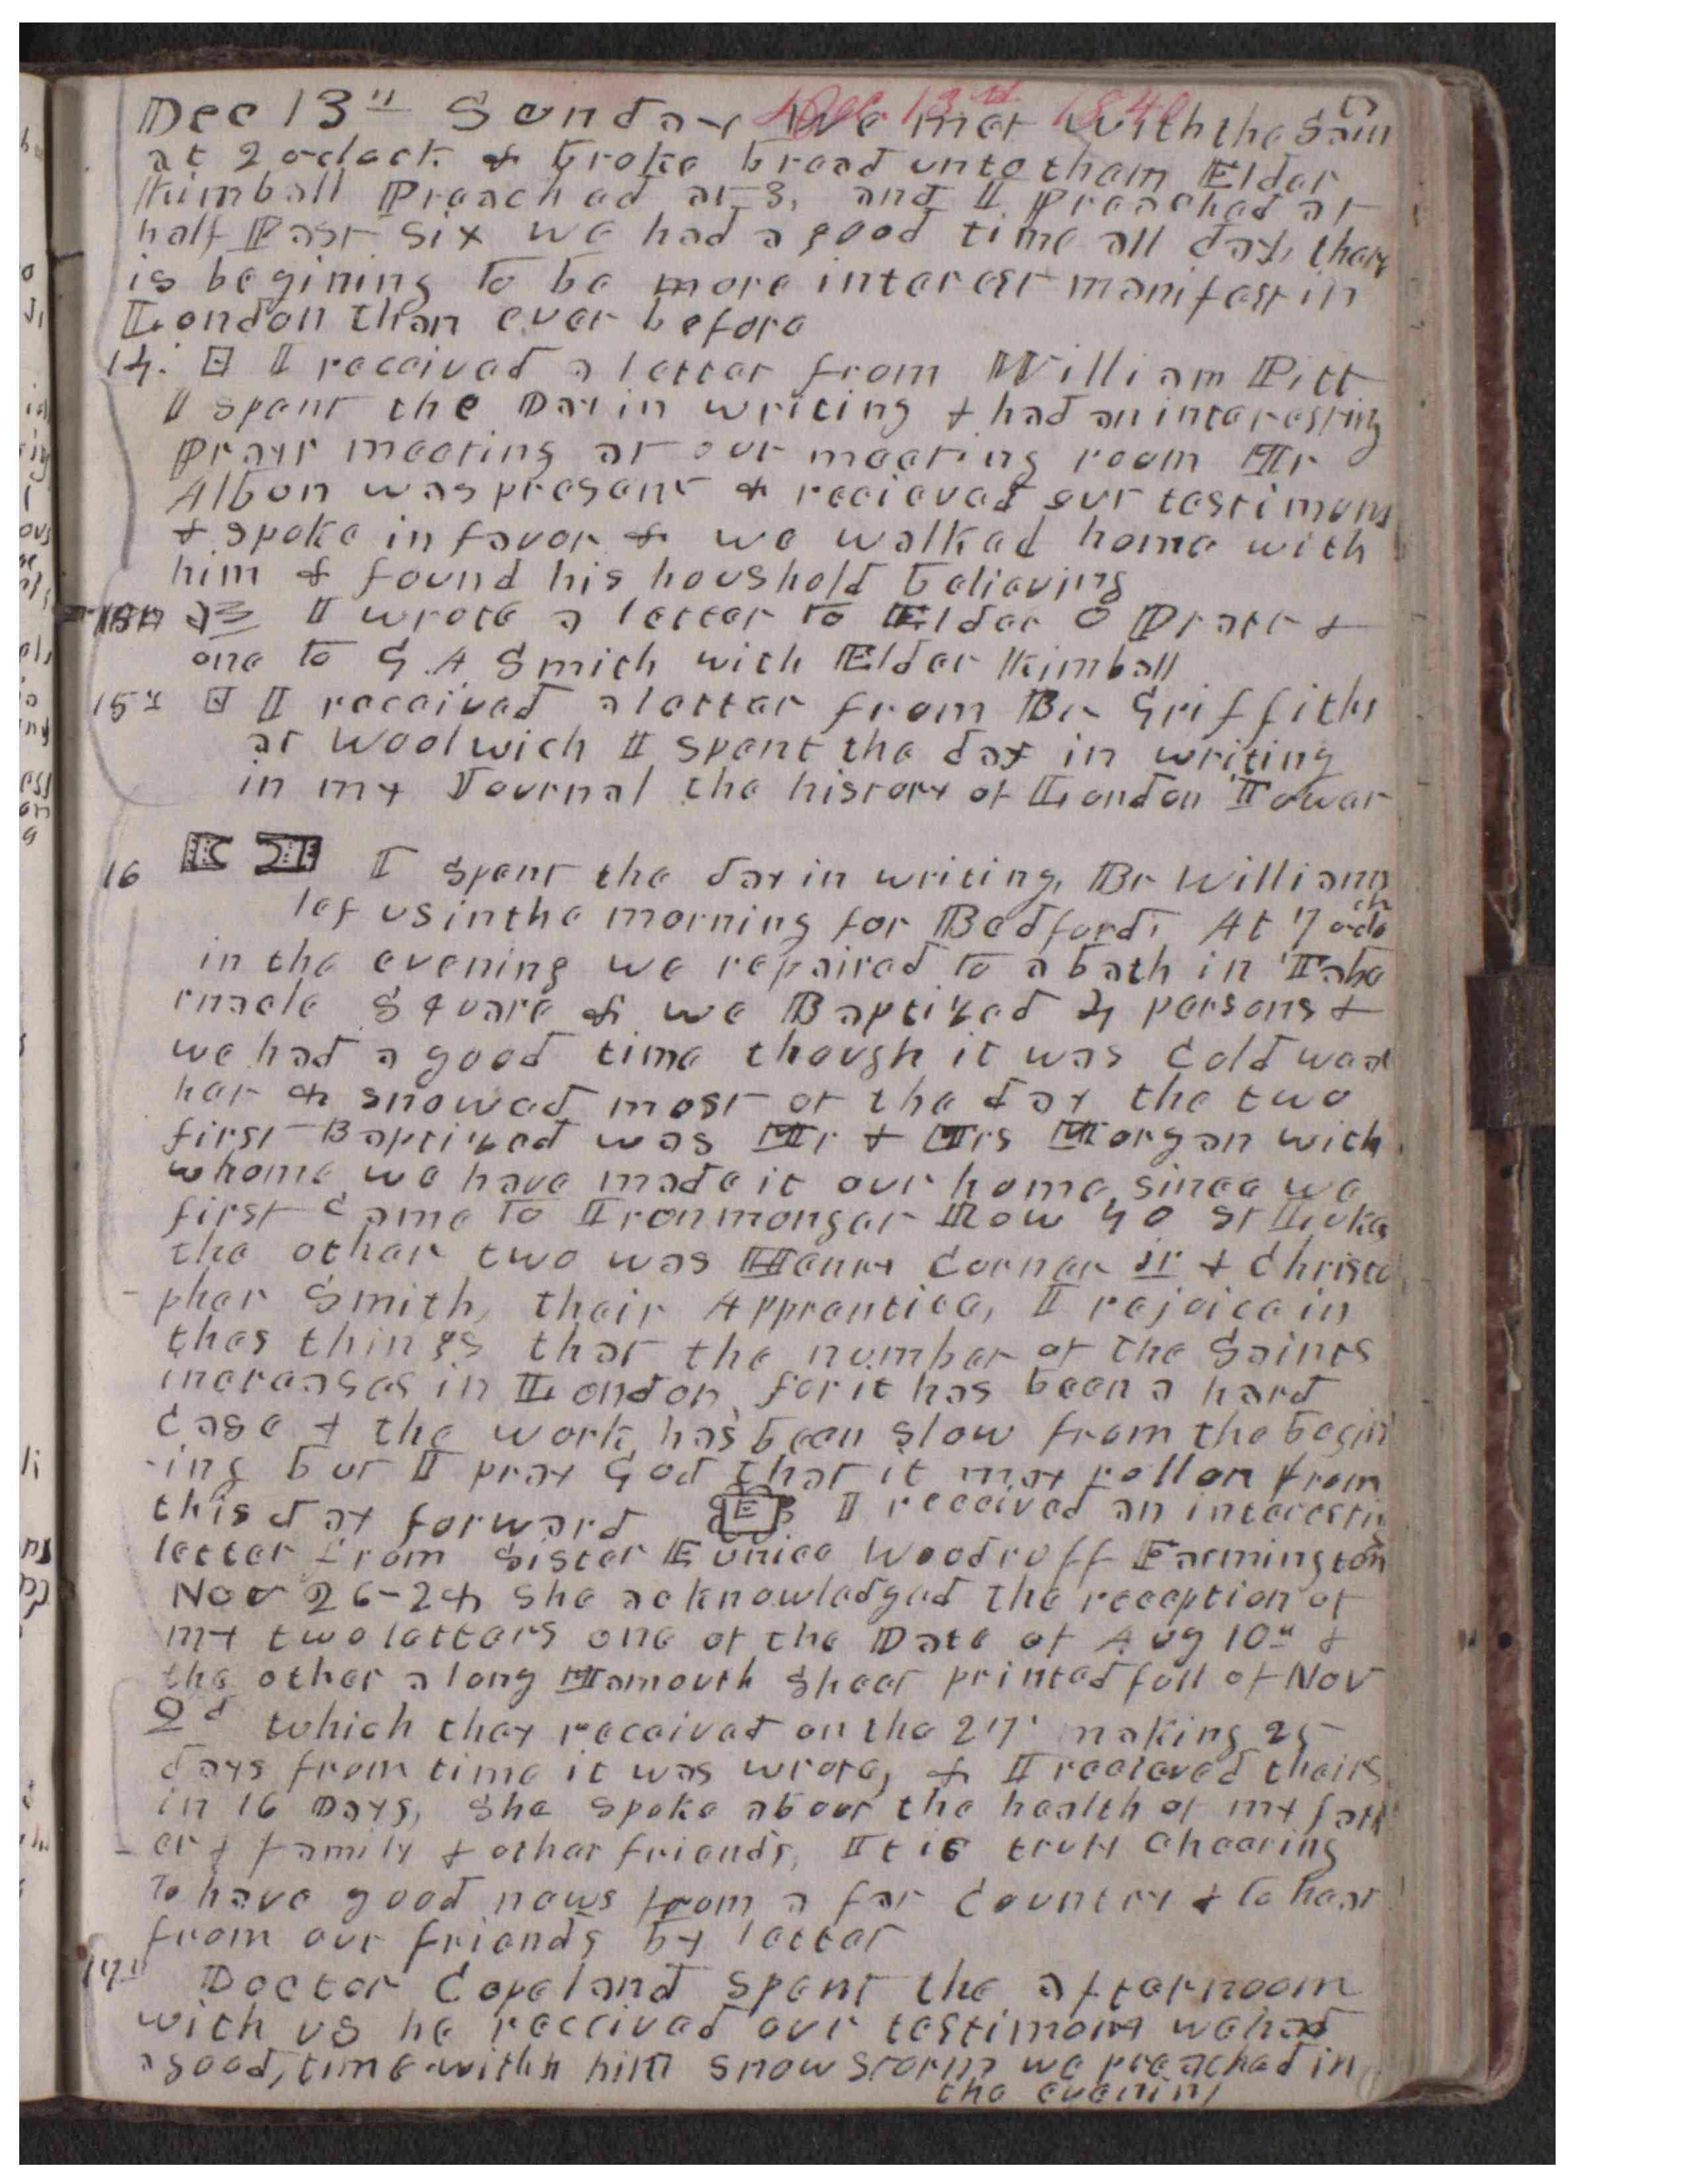 Dec 13th Sunday We met with the Saints
Dec. 13th 1840
at 2 oclock & broke bread unto them Elder
Kimball Preached at 3, and I preached at
half Past six we had a good time all day, there
is begining to be more interest manifest in
London than ever before
14. I received a letter from William Pitt
I spent the Day in writing & had an interesting
prayr meeting at our meeting room Mr
Albon was present & recieved our testimony
& spoke in favor & we walked home with
him & found his houshold believing
I wrote a letter to Elder O Pratt &
one to G A Smith with Elder Kimball
15th I received a letter from Br Griffiths
at Woolwich I spent the day in writing
in my Journal the history of London Tower
16 I spent the day in writing, Br Williams
lef us in the morning for Bedford, At 7 oclock
in the evening we repaired to a bath in Tabe
rnacle Square & we Baptized 4 persons &
we had a good time though it was cold weat
her & snowed most of the day the two
first Baptized was Mr & Mrs Morgan with
whome we have made it our home since we
first came to Ironmonger Row 40 St Lukes
the other two was Henry Corner jr & Christo
pher Smith, their Apprentice, I rejoice in
thes things that the number of the Saints
increases in London, for it has been a hard
case & the work has been slow from the begin
-ing but I pray God that it may roll on from
this day forward E I received an interesting
letter from Sister Eunice Woodruff Farmington
Nov 26-24 She acknowledged the reception of
my two letters one of the Date of Aug 10th &
the other a long Mamouth Sheet printed full of Nov
2d which they received on the 27. making 25
days from time it was wrote, & I recieved theirs
in 16 Days, She spoke about the health of my fath
er & family & other friends, It is truly cheering
to have good news from a far country & to hear
from our friends by letter
17th Doctor Copeland spent the afternoon
with us he received our testimony we had
a good, time with him snow storm we preached in
the evening